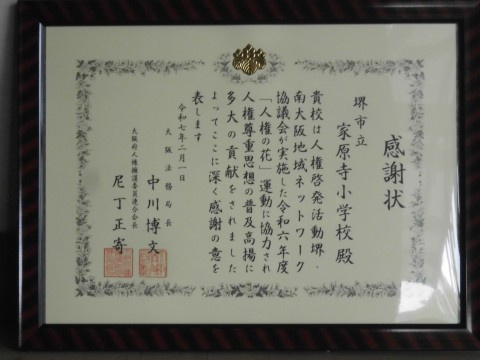 感謝状
堺市立
家原寺小学校 殿
貴校は人権啓発活動堺・
南大阪地域ネットワーク
協議会が実施した令和六年度
「人権の花」運動に協力され
人権尊重思想の普及高揚に
多大の貢献をされました
よってここに深く感謝の意を
表します
令和七年二月一日
大阪法務局長
中川博文
大阪府人権擁護委員連合会長
尼丁正寄